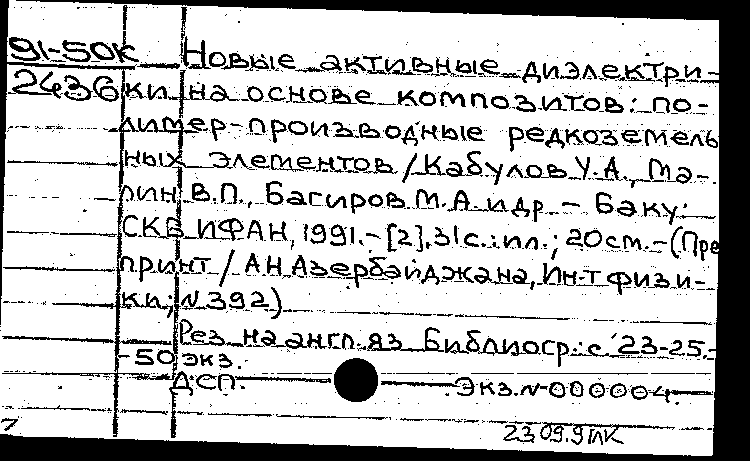 91-50К Новые активные диэлектри-
2436 ки на основе композитов: по-
лимер-производные редкоземель
ных элементов / Кабулов У.А., Ма-
лин В.П., Багиров М.А. и др. – Баку:
СКБ ИФАН, 1991.- [2], 31с.: ил.; 20см. - (Пре
принт / АН Азербайджана, Ин-т физи-
ки; N 392)
Рез. на англ. яз. Библиогр.: с 23-25.-
-50 экз.
ДСП. Экз. N-000004.
23 09.91